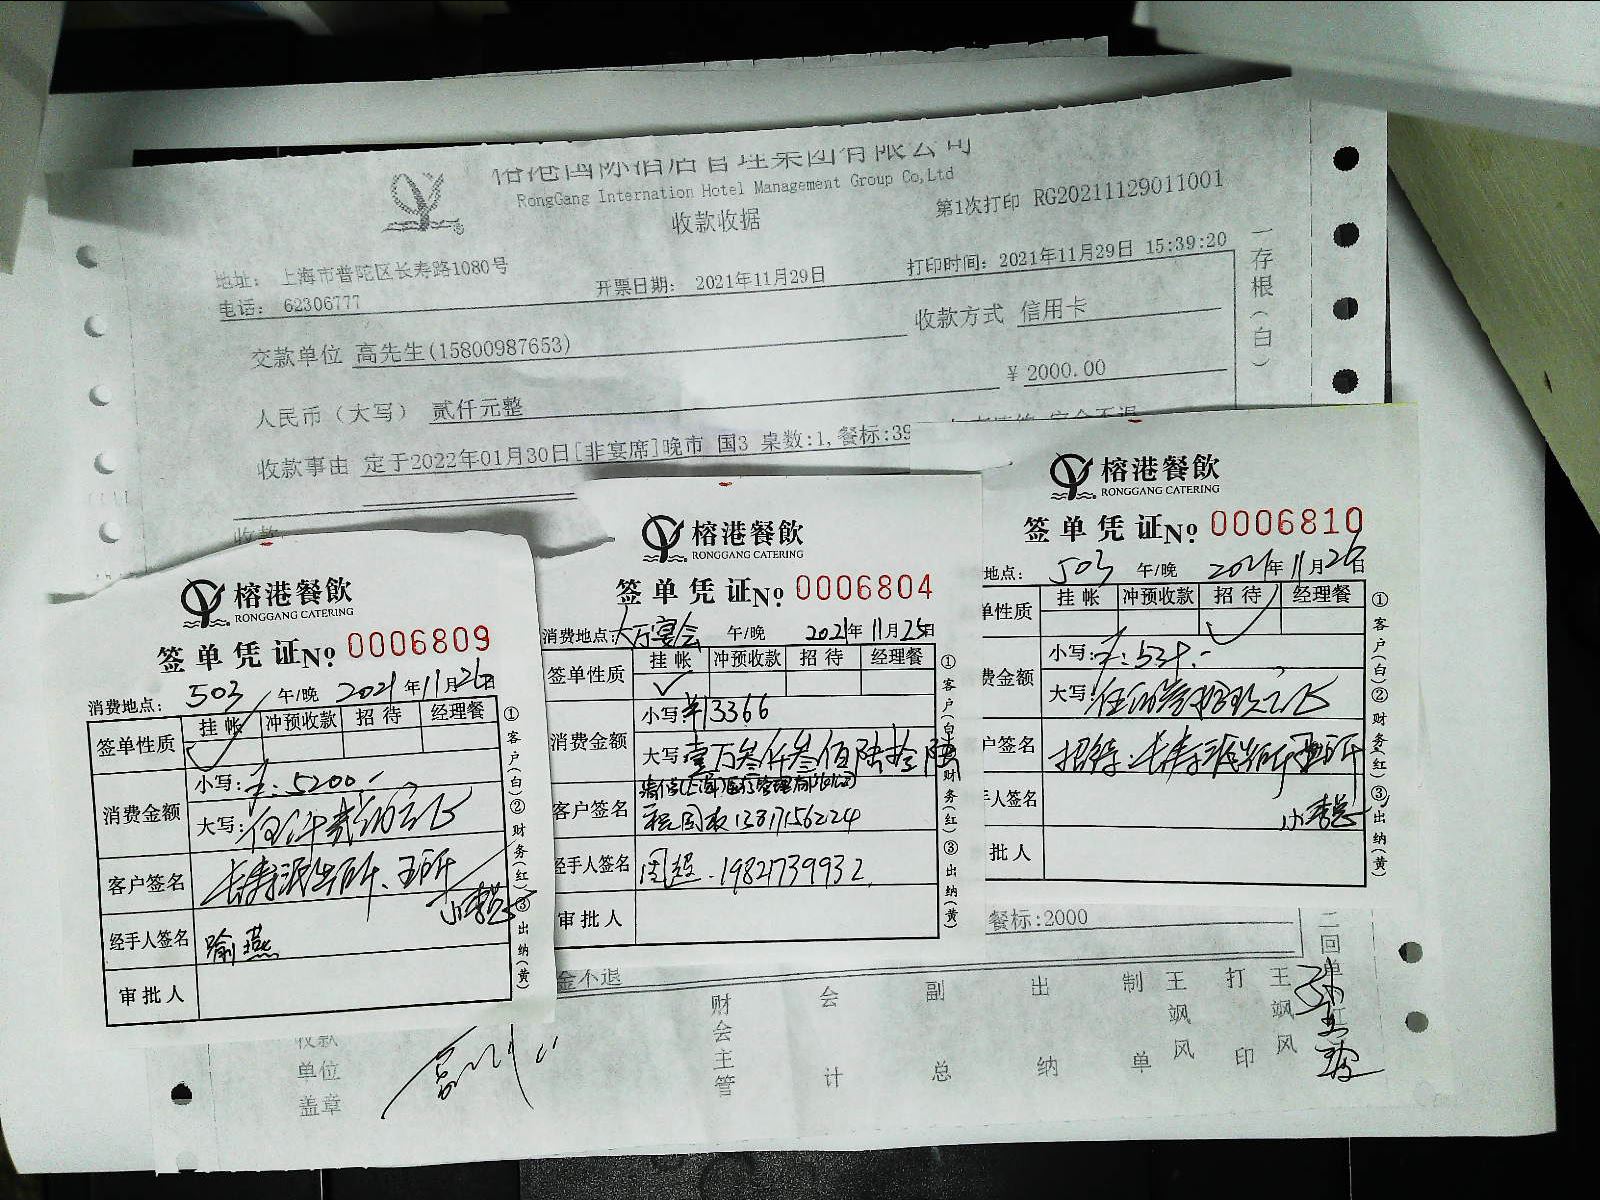 国际酒店管理集团有限公司
RongGang Internation Hotel Management Group Co,Ltd
收款收据
第1次打印 RG20211129011001
地址： 上海市普陀区长寿路1080号
电话： 62306777
开票日期： 2021年11月29日
打印时间：2021年11月29日 15:39:20
一存根（白）
交款单位 高先生(15800987653)
收款方式 信用卡
人民币（大写） 贰仟元整
¥ 2000.00
收款事由 定于2022年01月30日[非宴席]晚市 国3 桌数:1,餐标:39
收款
榕港餐飲
RONGGANG CATERING
签单凭证No. 0006809
消费地点： 503 午/晚 2021年11月26日
签单性质 挂帐 冲预收款 招待 经理餐
消费金额
小写：¥：5200.-
大写：
客户签名 长寿派出所、王所
经手人签名 喻燕
审批人
①客户(白)②财务(红)③出纳(黄)
榕港餐飲
RONGGANG CATERING
签单凭证No. 0006804
消费地点：大厅宴会 午/晚 2021年11月25日
签单性质 挂帐 冲预收款 招待 经理餐
消费金额
小写 ¥13366
大写 壹万叁仟叁佰陆拾陆
客户签名
程国权 13817156224
经手人签名 周超.19821739932
审批人
①客户(白 财务(红)③出纳(黄)
榕港餐飲
RONGGANG CATERING
签单凭证No. 0006810
地点： 503 午/晚 2021年11月26日
单性质 挂帐 冲预收款 招待 经理餐
费金额
小写：¥：534.-
大写：
户签名 招待：长寿派出所 王所
手人签名
批人
①客户(白)②财务(红)③出纳(黄)
餐标:2000
金不退
二回单
收款单位盖章
财会主管
会计
副总
出纳
制单
王飒风
打印
王飒风